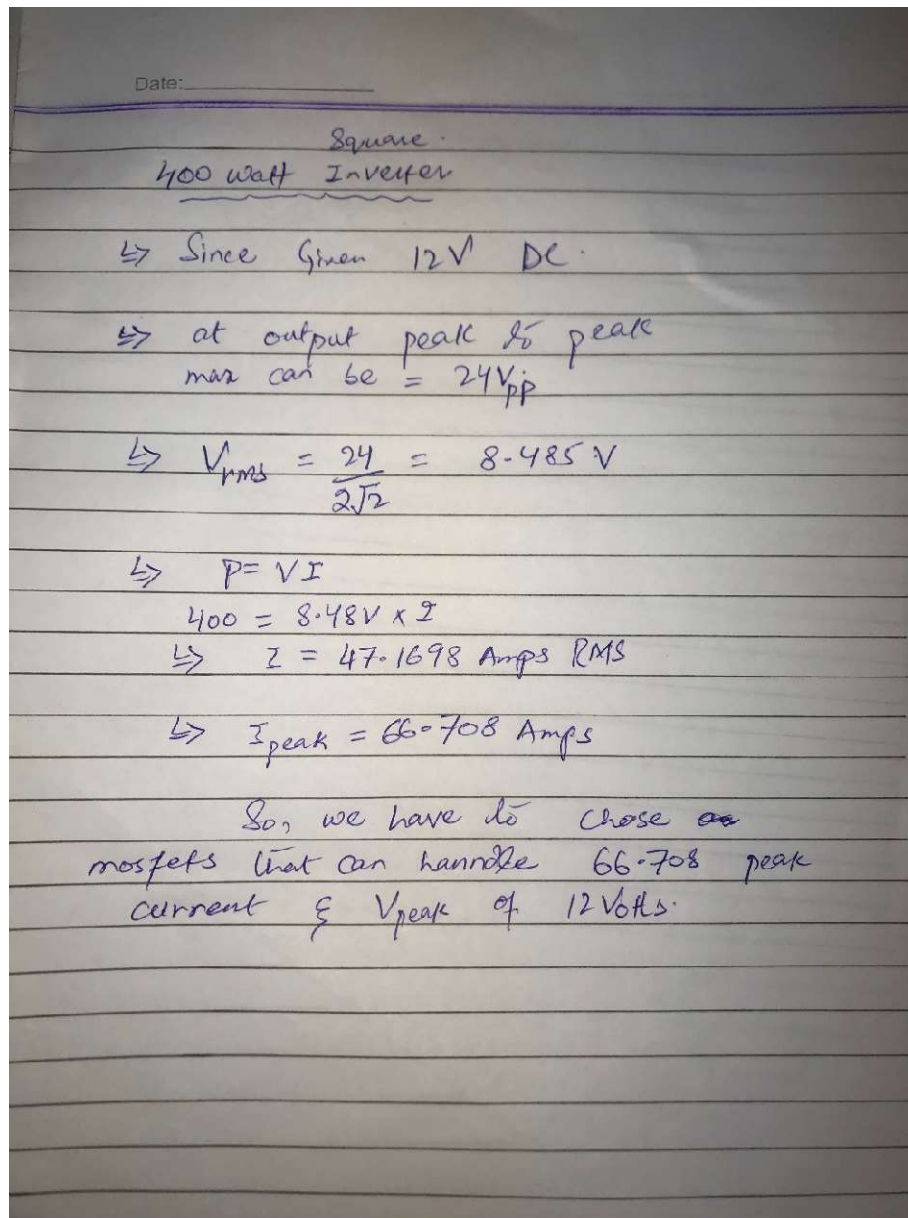 Date:
Square.
400 watt Inverter
↳> Since Given 12V DC.
↳> at output peak to peak
max can be = 24Vpp
↳> Vrms = 24/2√2 = 8.485 V
↳> P = VI
400 = 8.48V x I
↳> I = 47.1698 Amps RMS
↳> Ipeak = 66.708 Amps
So, we have to chose
mosfets that can hanndle 66.708 peak
current & Vpeak of 12 Volts.